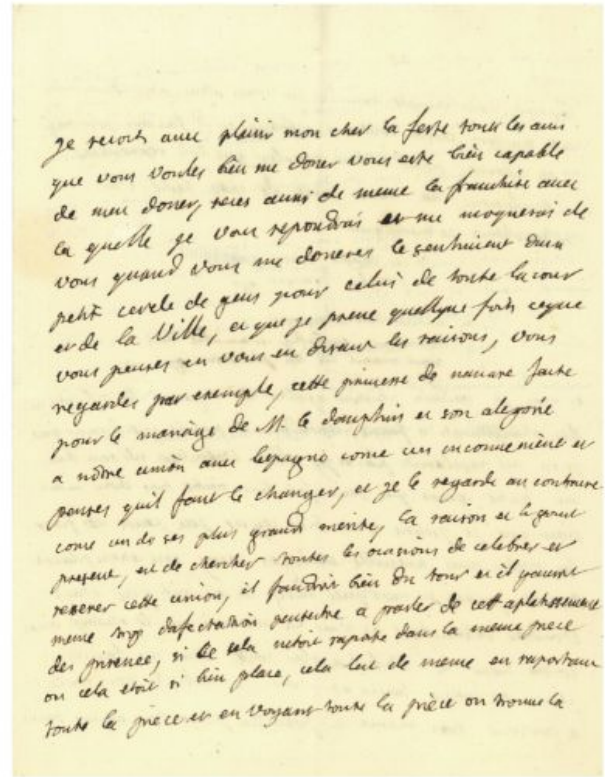 je recois avec plaisir mon cher la ferte tous les avis
que vous voules bien me doner vous este bien capable
de men doner, reces aussi de meme la franchise avec
la quelle je vous repondrai et me moquerai de
vous quand vous me doneres le sentiment dun
petit cercle de gens pour celui de toute la cour
et de la Ville, et que je prene quelque fois ceque
vous penses en vous en disant les raisons, vous
regardes par exemple, cette princesse de navare faite
pour le mariage de M. le dauphin et son alegorie
a notre union avec lespagne come un inconvenient et
penses quil faut le changer, et je le regarde au contraire
come un de ses plus grand merite, la raison et le gout
present, est de chercher toutes les ocasions de celebrer et
reserer cette union, il faudroit bien du tour et il pauroit
meme trop dafectation peutetre a parler de cet aplatissement
des pirenee, si cela netoit raporté dans la meme piece
ou cela etoit si bien place, cela lest de meme en raportant
toute la piece et en voyant toute la piece on trouve la